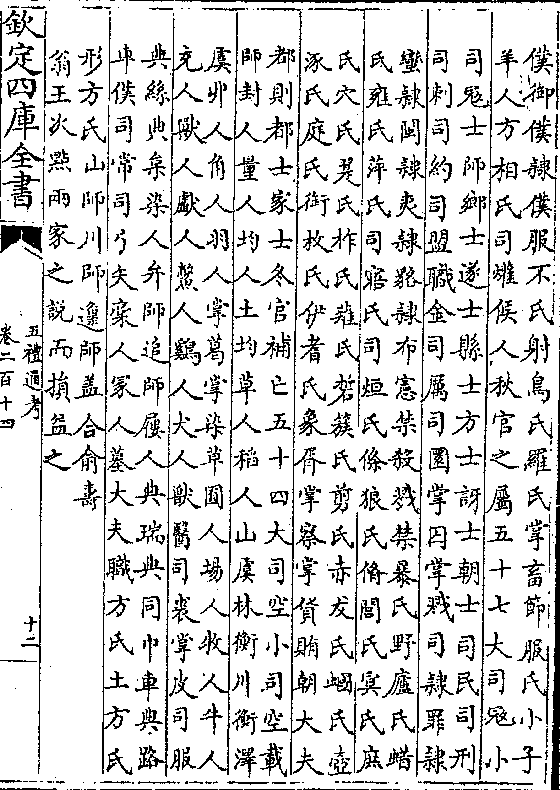 僕御僕隸僕服不氏射鳥氏羅氏掌畜節服氏小子
羊人方相氏司爟候人秋官之屬五十七大司寇小
司寇士師鄉士遂士縣士方士訝士朝士司民司刑
司刺司約司盟職金司厲司圜掌囚掌戮司隸罪隸
蠻隸閩隸夷隸貉隸布憲禁殺戮禁暴氏野廬氏蜡
氏雍氏萍氏司寤氏司烜氏條狼氏脩閭氏冥氏庶
氏穴氏翨氏柞氏薙氏硩蔟氏剪氏赤犮氏蟈氏壺
涿氏庭氏銜枚氏伊耆氏象胥掌察掌貨賄朝大夫
都則都士家士冬官補亡五十四大司空小司空載
師封人量人均人土均草人稻人山虞林衡川衡澤
虞丱人角人羽人掌葛掌染草囿人場人牧人牛人
充人獸人獻人鱉人鷄人犬人獸醫司裘掌皮司服
典絲典枲染人弁師追師屨人典瑞典同巾車典路
車僕司常司弓矢槀人冢人墓大夫職方氏土方氏
形方氏山師川師邍師蓋合俞壽
翁王次點兩家之說而損益之
欽定四庫全書
五禮通考
卷二百十四
十二